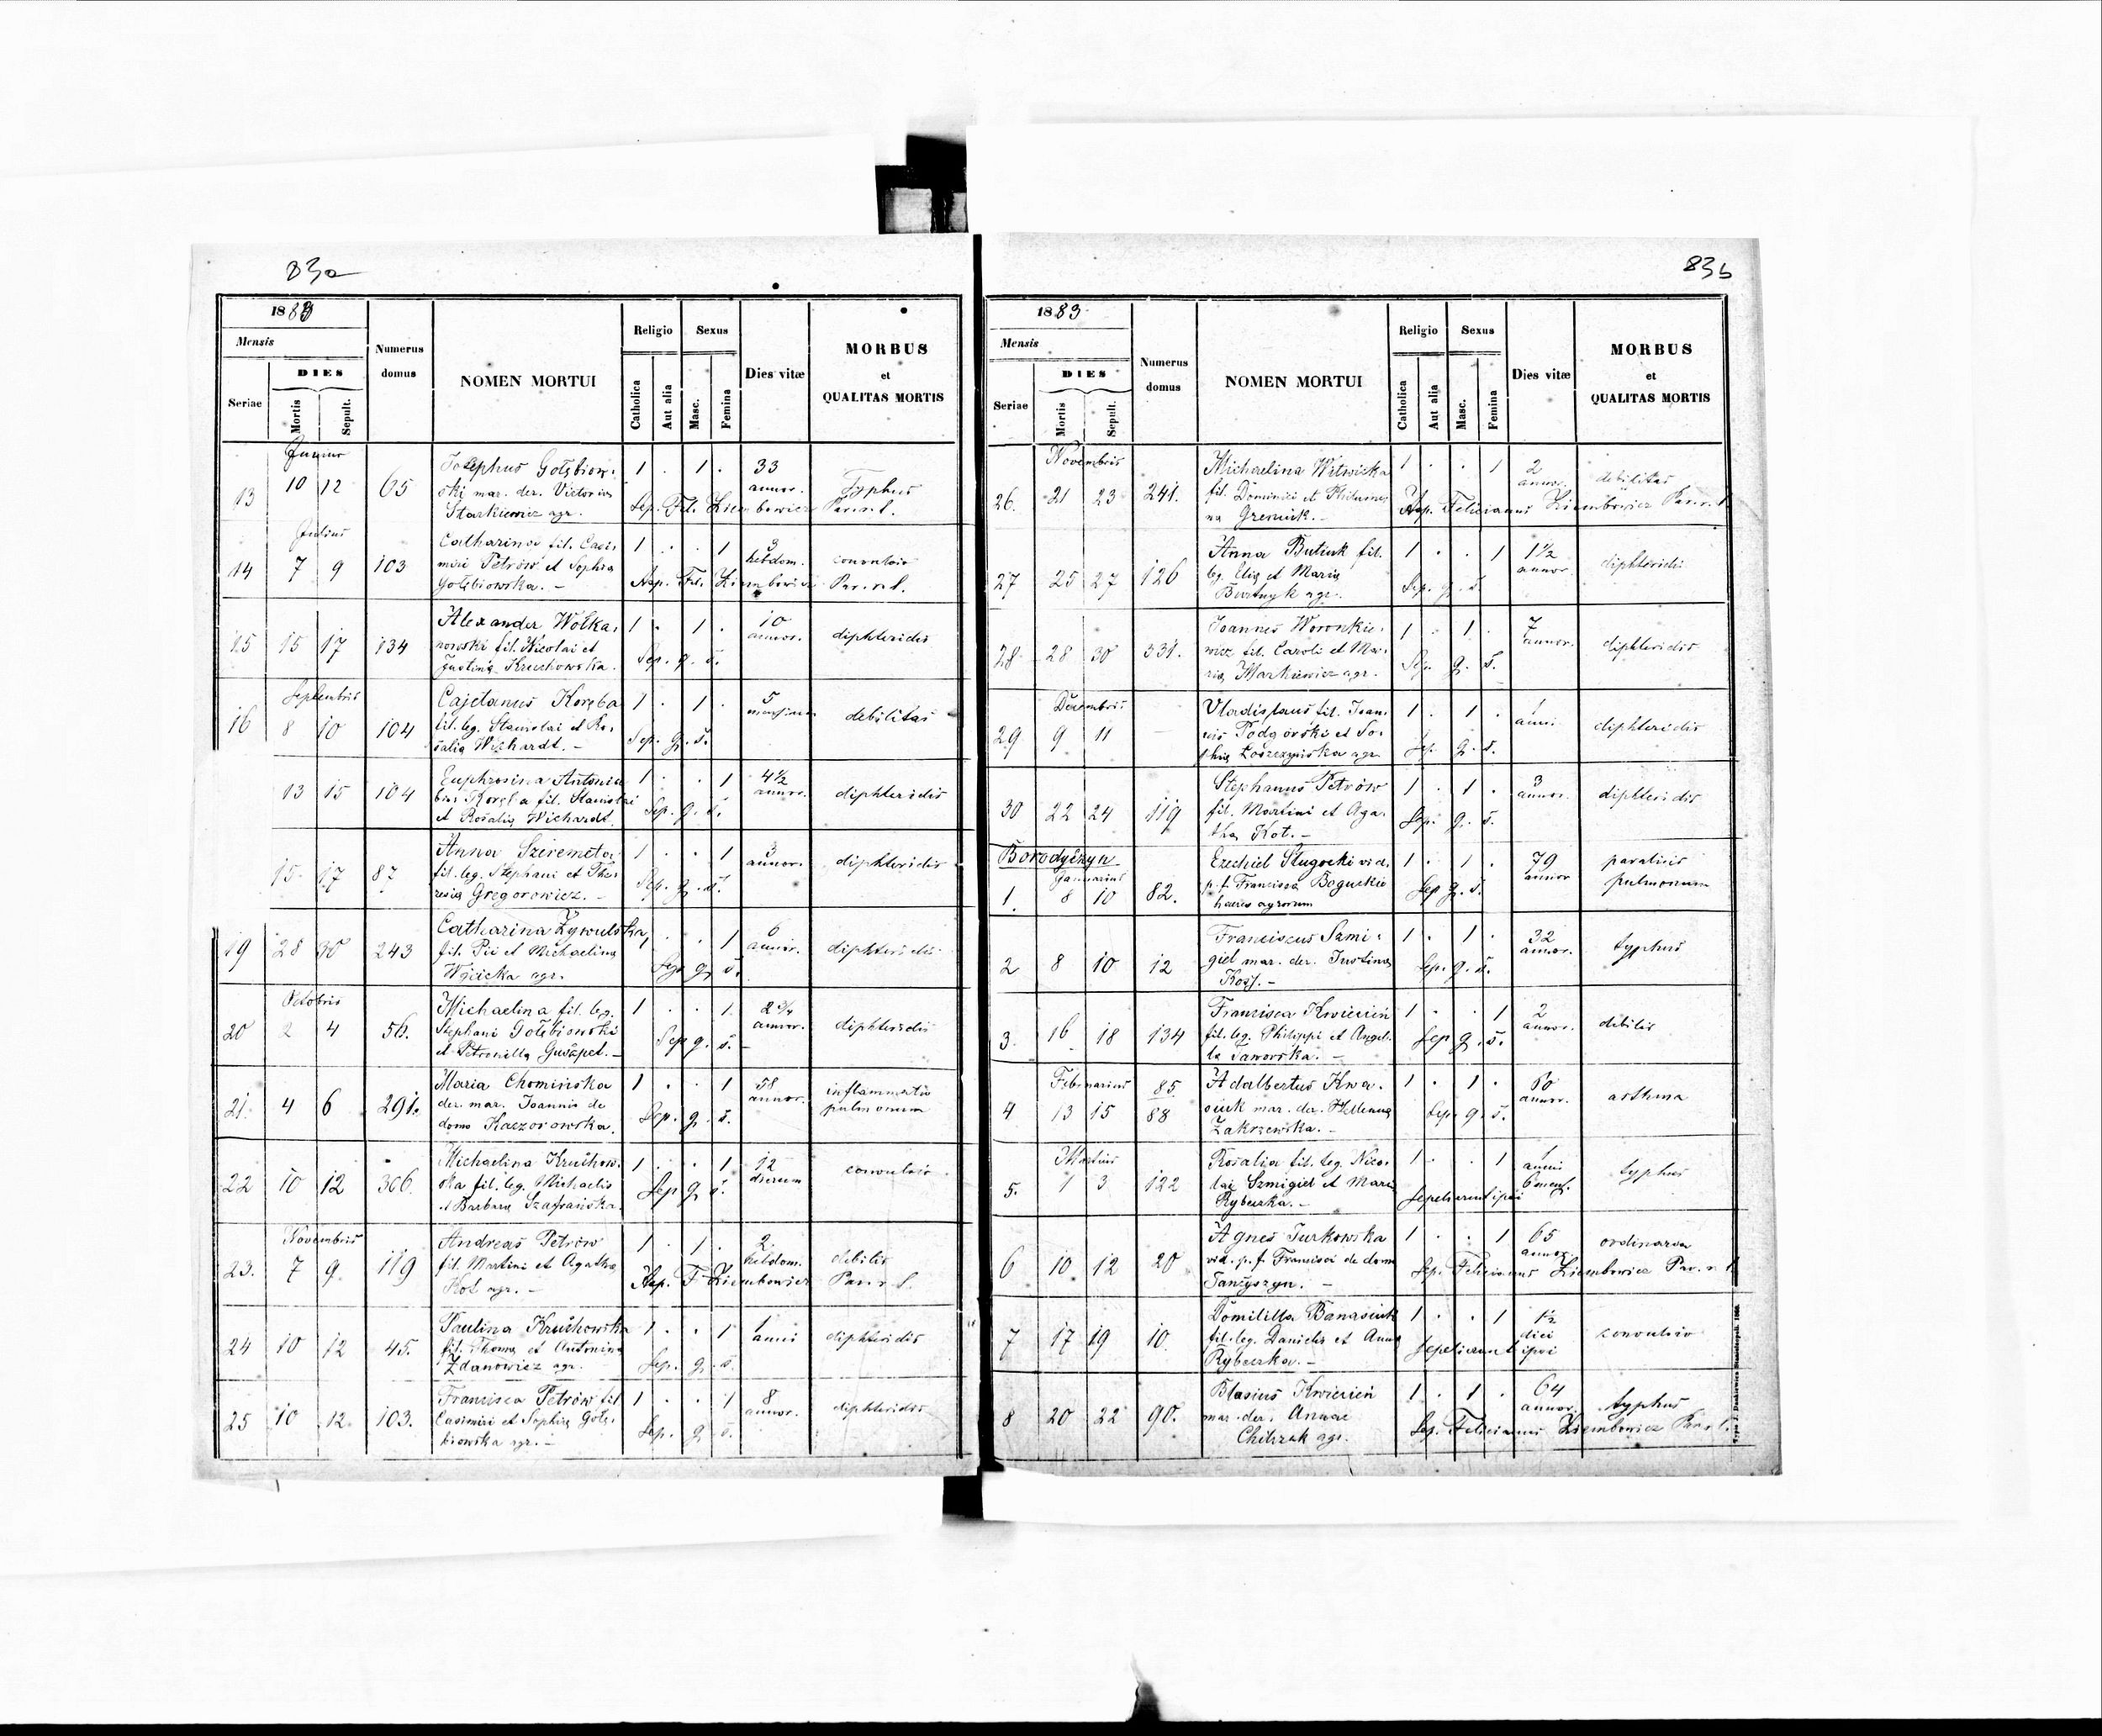 83a
1883
Mensis
Seriae
DIES
Mortis
Sepult.
Numerus domus
NOMEN MORTUI
Religio
Catholica
Aut alia
Sexus
Masc.
Femina
Dies vitæ
MORBUS
et
QUALITAS MORTIS
Junius
13 10 12 65 Josephus Gołębiow- 1 . 1 . 33 annor. Typhus
ski mar. der. Victoriæ
Starkiewicz agr. Sep. Fel. Ziembowicz Par. r. l.
Julius
14 7 9 103 Catharina fil. Casi- 1 . . 1 3 hebdom. convulsio
miri Petrów et Sophia
Gołębiowska. - Sep. Fel. Ziembowicz Par. r. l.
15 15 17 134 Alexander Wołka- 1 . 1 . 10 annor. diphteridis
nowski fil. Nicolai et
Justina Kruchowska. Sep. q. s.
Septembris
16 8 10 104 Cajetanus Koręba 1 . 1 . 5 debilitas
fil. leg. Stanislai et Ro-
salia Wichardt. - Sep. q. s.
13 15 104 Euphrosina Antonia 1 . . 1 4 1/2 annor. diphteridis
Koręba fil. Stanislai
et Rosalia Wichardt. Sep. q. s.
15 17 87 Anna Szeremeta 1 . . 1 3 annor. diphteridis
fil. leg. Stephani et The-
resia Gregorowicz. - Sep. q. s.
19 28 30 243 Catharina Żywulska 1 . . 1 6 annor. diphteridis
fil. Pii et Michaelina
Wójcicka agr. Sep. q. s.
Octobris
20 2 4 56. Michaelina fil. leg. 1 . . 1 2 3/4 annor. diphteridis
Stephani Gołębiowski
et Petronilla Guszpet. - Sep. q. s.
21. 4 6 291. Maria Chomińska 1 . . 1 58 annor. inflammatio pulmonum
der. mar. Joannis de
domo Kaczorowska. Sep. q. s.
22 10 12 306. Michaelina Kruchow- 1 . . 1 12 dierum convulsio
ska fil. leg. Michaelis
et Barbara Szafrańska. Sep. q. s.
Novembris
23. 7 9 119 Andreas Petrów 1 . 1 . 2. hebdom. debilis
fil. Martini et Agatha
Kot agr. - Sep. F. Ziembowicz Par. r. l.
24 10 12 45. Paulina Kruchowska 1 . . 1 1 anni diphteridis
fil. Thoma et Antonina
Zdanowicz agr. Sep. q. s.
25 10 12. 103. Francisca Petrów fil. 1 . . 1 8 annor. diphteridis
Casimiri et Sophia Gołę-
biowska agr. - Sep. q. s.
83b
1883
Mensis
Seriae
DIES
Mortis
Sepult.
Numerus domus
NOMEN MORTUI
Religio
Catholica
Aut alia
Sexus
Masc.
Femina
Dies vitæ
MORBUS
et
QUALITAS MORTIS
Novembris
26. 21 23 241. Michaelina Witwicka 1 . . 1 2 annor. debilitas
fil. Dominici et Philume-
na Greniuk. - Sep. Felicianus Ziembowicz Par. r. l.
27 25 27 126 Anna Butiuk fil. 1 . . 1 1 1/2 annor. diphteridis
leg. Elia et Maria
Burtnyk agr. Sep. q. s.
28 28 30 331. Joannes Woronkie- 1 . 1 . 7 annor. diphteridis
wicz fil. Caroli et Ma-
ria Markiewicz agr. Sep. q. s.
Decembris
29 9 11 Vladislaus fil. Joan- 1 . 1 . 1 anni diphteridis
nis Podgórski et So-
phia Łoszczyńska agr. Sep. q. s.
30 22 24 119 Stephanus Petrów 1 . 1 . 3 annor. diphteridis
fil. Martini et Aga-
tha Kot. - Sep. q. s.
Borodyczyn
Januarius
1. 8 10 82. Ezechiel Sługocki vid. 1 . 1 . 79 annor paralisis
p. f. Francisca Boguckie pulmonum
haeres agrorum Sep q. s.
2 8 10 12 Franciscus Szmi- 1 . 1 . 32 annor. typhus
giel mar. der. Justina
Sep. q. s.
3. 16 18 134 Francisca Kwiecień 1 . . 1 2 annor. debilis
fil. leg. Philippi et Angel-
la Jaworska. - Sep q. s.
Februarius
4 13 15 85. 88 Adalbertus Kwa- 1 . 1 . 60 annor. asthma
śniuk mar. der. Hellena
Zakrzewska. - Sep. q. s.
Martius
5. 1 3 122 Rosalia fil. leg. Nico- 1 . . 1 1 anni 6 mens. typhus
lai Szmigiel et Maria
Ryboszka. - Sepelierunt ipsi
6 10 12 20 Agnes Turkowska 1 . . 1 65 annor. ordinaria
vid. p. f. Francisci de domo
Sep. Felicianus Ziembowicz Par. r. l.
7 17 19 10. Domililla Banasiuk 1 . . 1 1 1/2 diei convulsio
fil. leg. Danielis et Anna
Ryboszka. - Sepelierunt ipsi
8 20 22 90. Blasius Kwiecień 1 . 1 . 64 annor. typhus
mar. der. Annae
agr. Sep. Felicianus Ziembowicz Par. r. l.